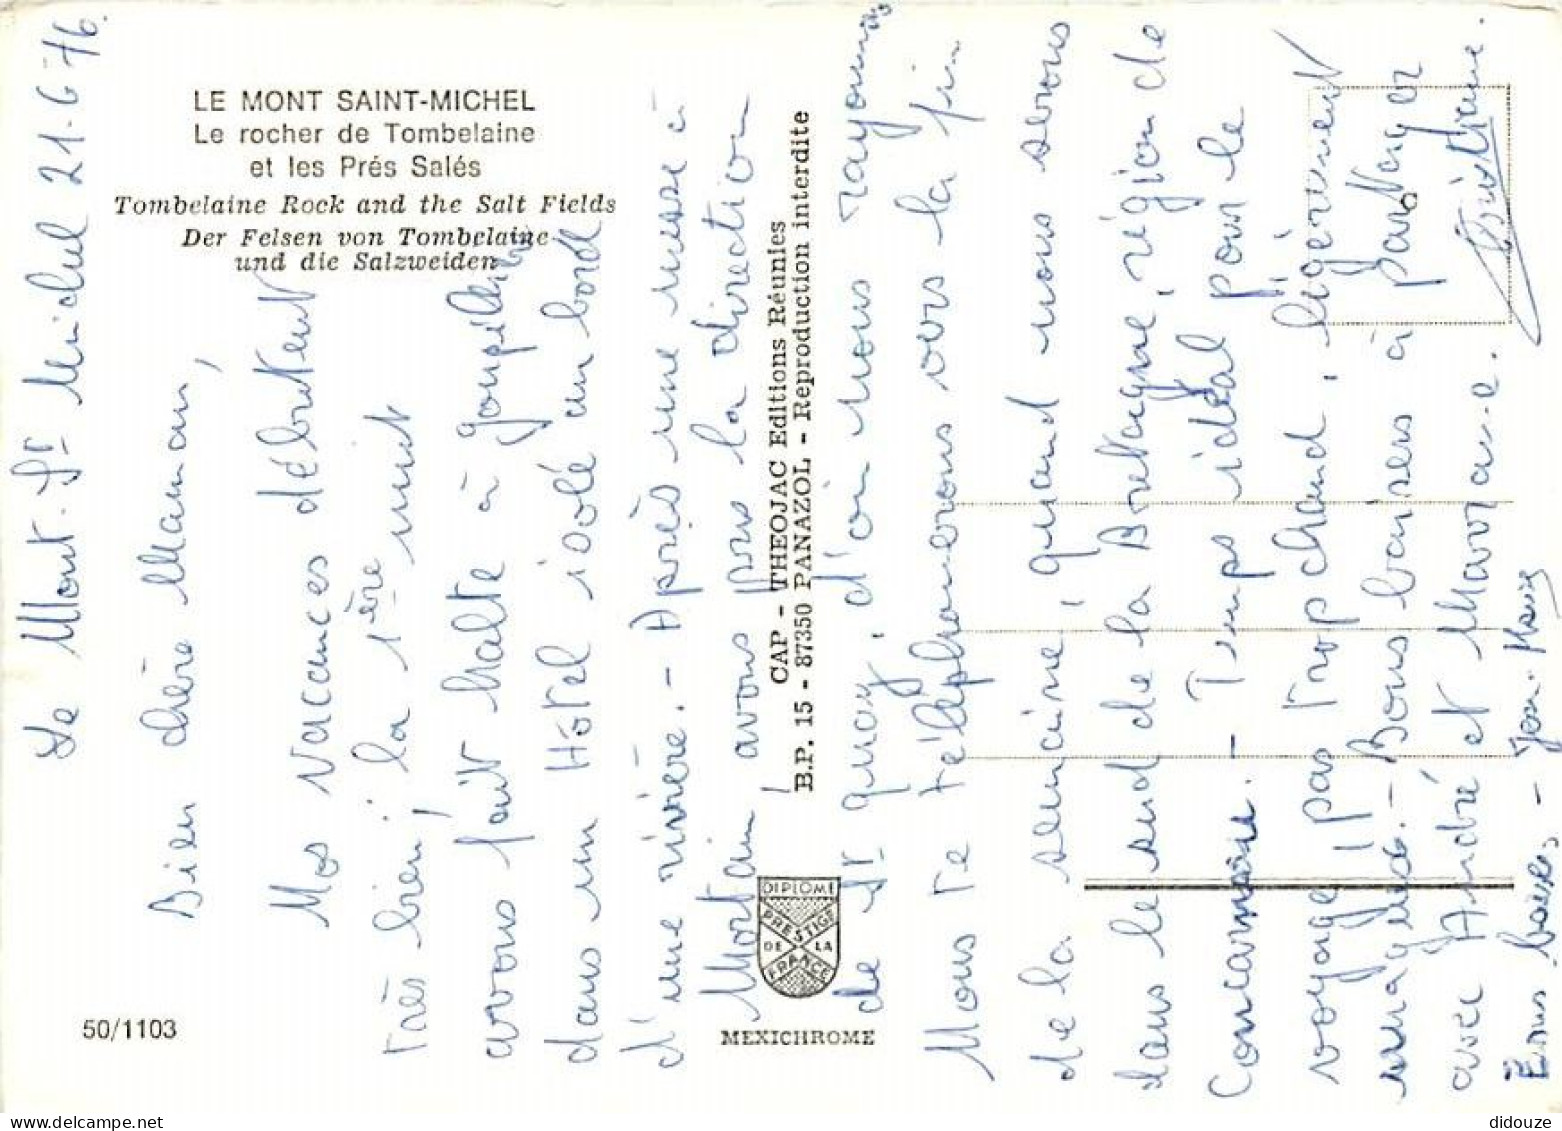 LE MONT SAINT-MICHEL
Le rocher de Tombelaine
et les Prés Salés
Tombelaine Rock and the Salt Fields
Der Felsen von Tombelaine
und die Salzweiden
50/1103
CAP - THEOJAC Editions Réunies
B.P. 15 - 87350 PANAZOL - Reproduction interdite
DIPLOME
PRESTIGE
DE LA
FRANCE
MEXICHROME
Le Mont. St Michel 21-6-76.
Bien chère Maman,
Nos vacances débutent
très bien ; la 1ère nuit
avons fait halte à
dans un Hôtel isolé au bord
d'une rivière. - Après une messe à
Mortain avons pris la direction
de St quay, d'où nous rayonnons
Nous te téléphonerons vers la fin
de la semaine, quand nous serons
dans le sud de la Bretagne, région de
Concarneau. - Temps idéal pour le
voyage, pas trop chaud, légèrement
nuageux. - Bons baisers à partager
avec André et Marraine. Christiane.
bons baisers - Jean-Marie
didouze